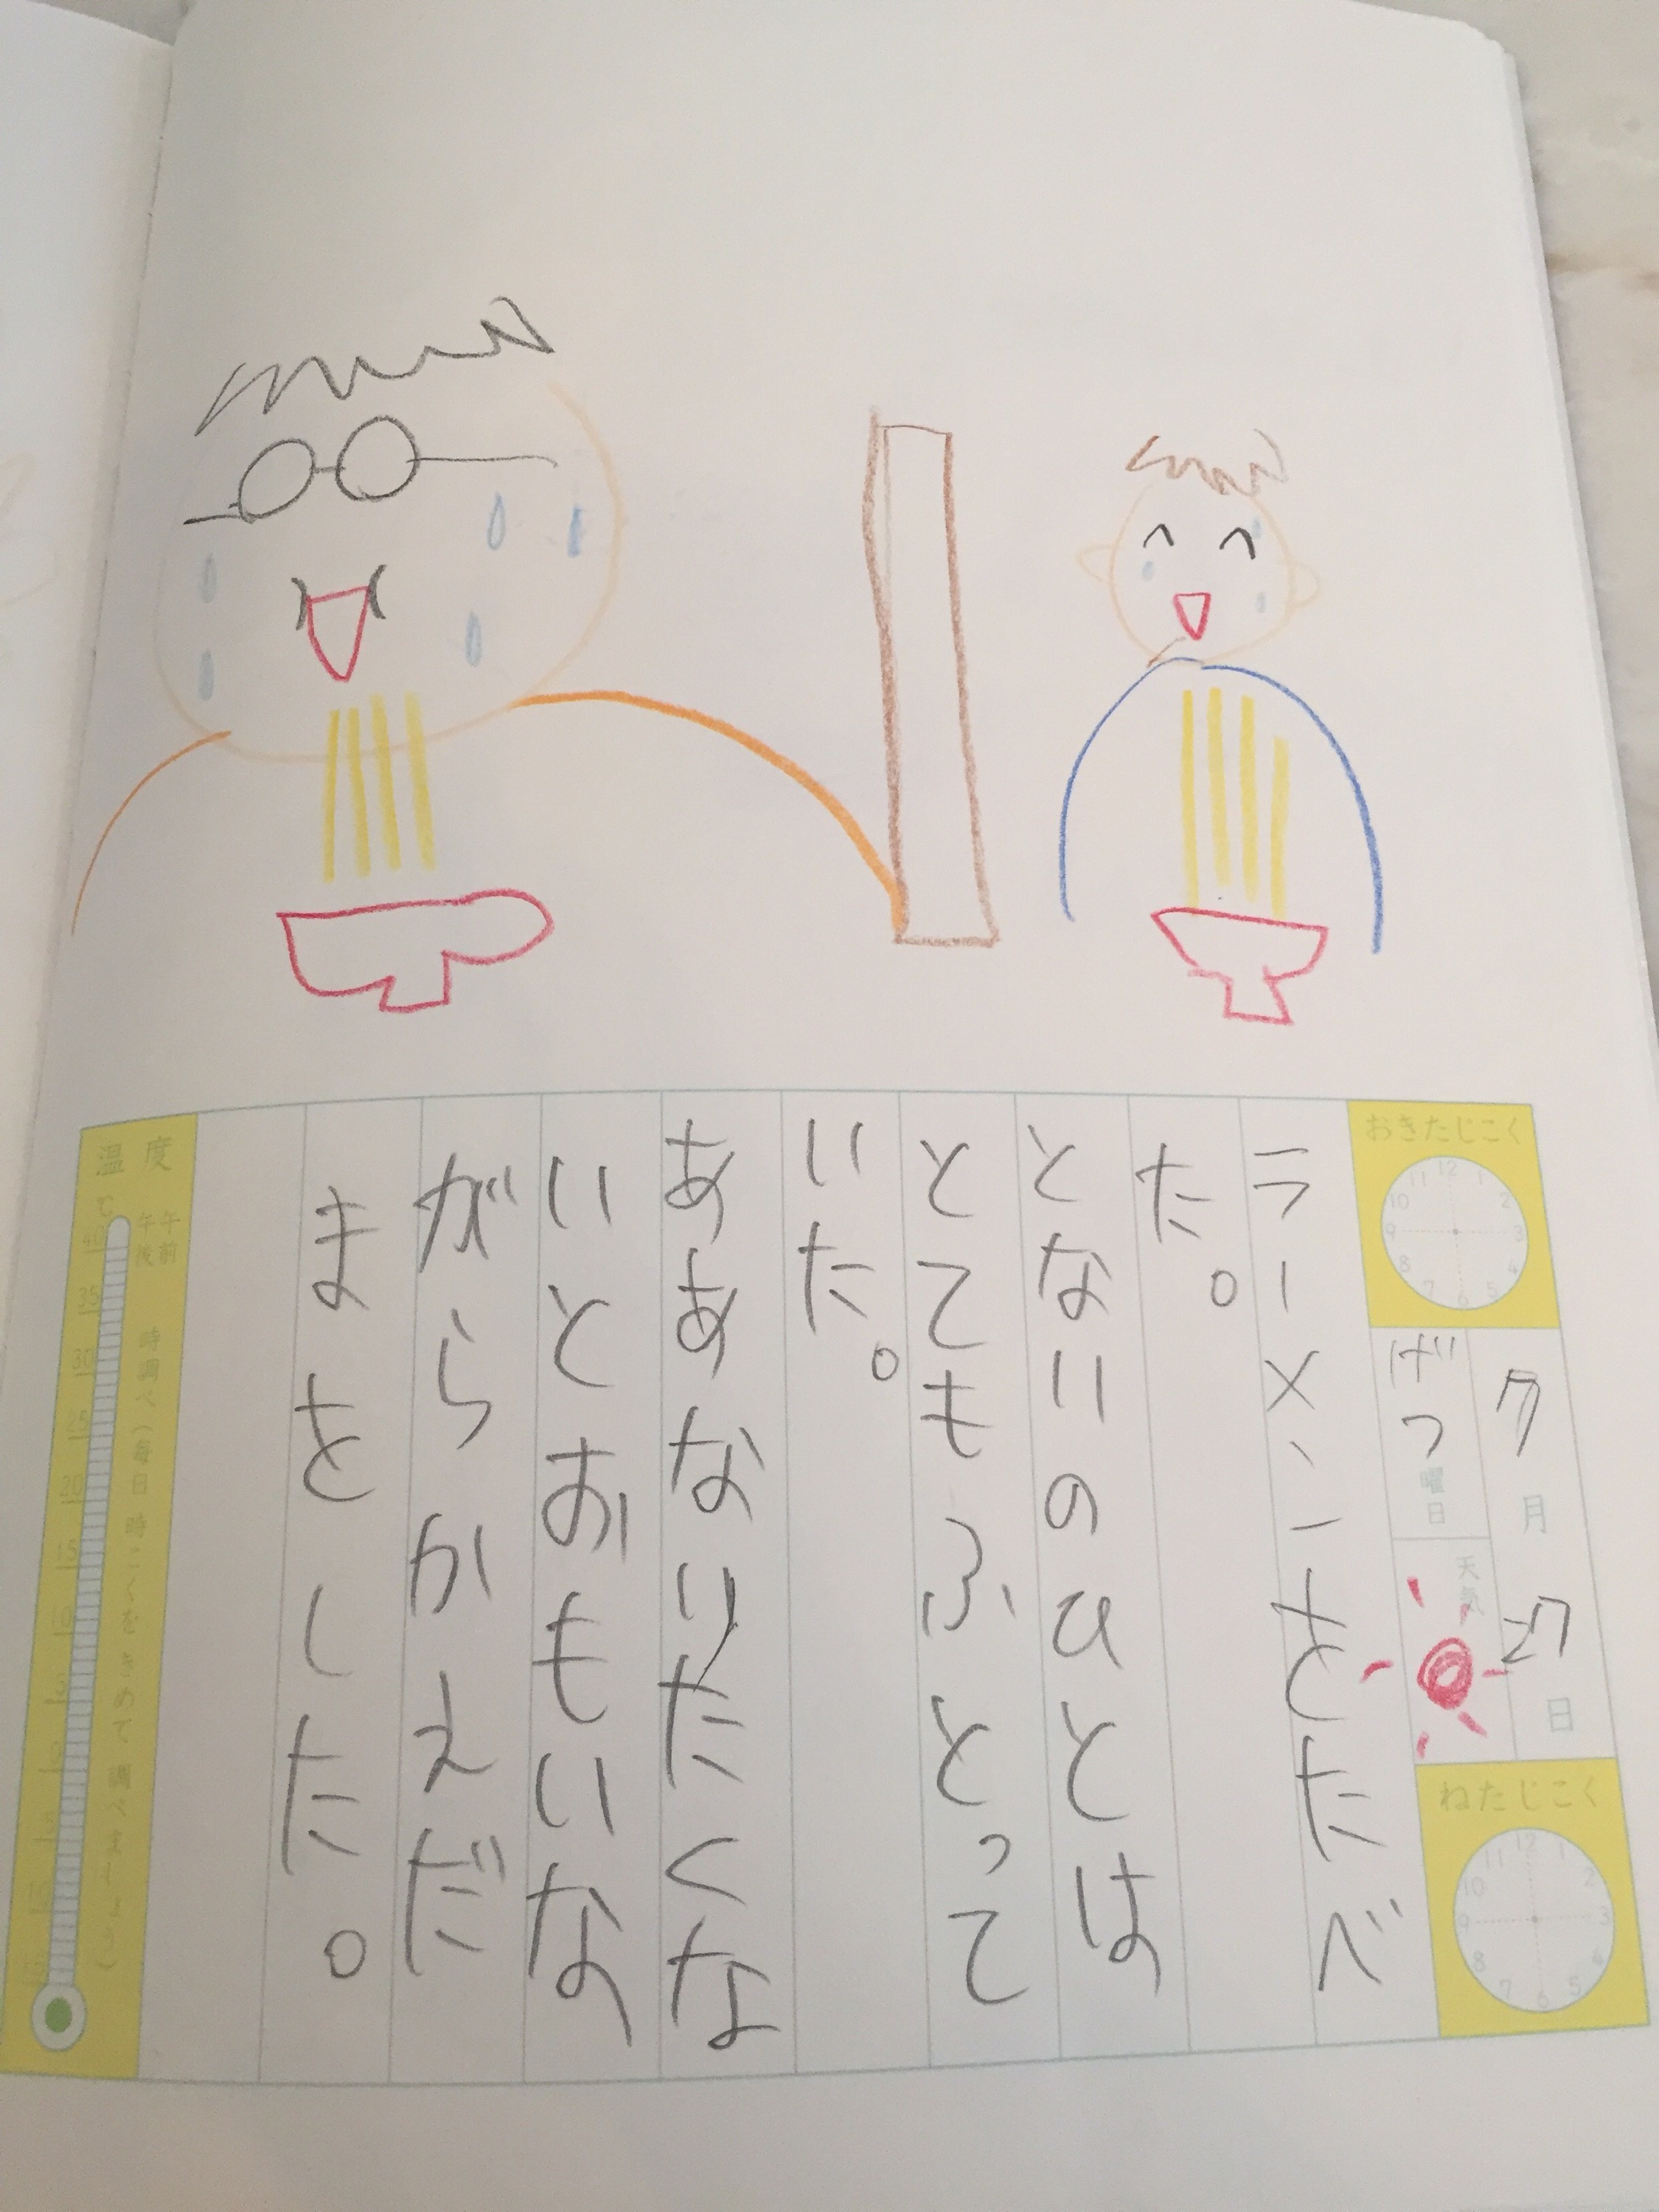 おきたじこく
12 1 2 3 4 5 6 7 8 9 10 11
7月27日
げつ曜日
天気
ねたじこく
12 1 2 3 4 5 6 7 8 9 10 11
ラーメンをたべ
た。
となりのひとは
とてもふとって
いた。
ああなりたくな
いとおもいな
がらかえだ
まをした。
温度
午前
午後
時調べ(毎日 時こくをきめて調べましょう)
℃
40
35
30
25
20
15
10
5
0
5
10
15